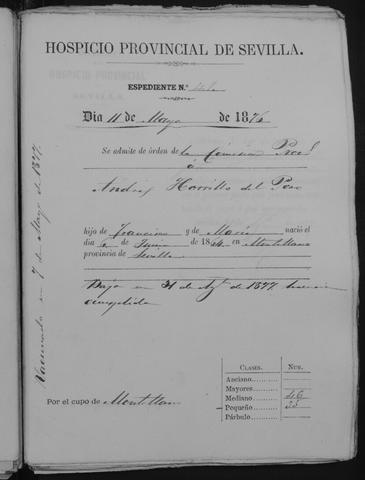 HOSPICIO PROVINCIAL DE SEVILLA.
EXPEDIENTE N.º
Dia 11 de Mayo de 1876
Se admite de órden de la Comision Prov.l
á
Andres Horrillo del Pozo
hijo de Francisco y de Maria nació el
dia 6 de Junio de 1864 en Montellano
provincia de Sevilla
Baja en 31 de Ag.to de 1877 licencia
cumplida
Vacunado en 7 de Mayo de 1877.
CLASES. NÚM.
Anciano
Mayores
Mediano 46
Pequeño 33
Párbulo
Por el cupo de Montellano